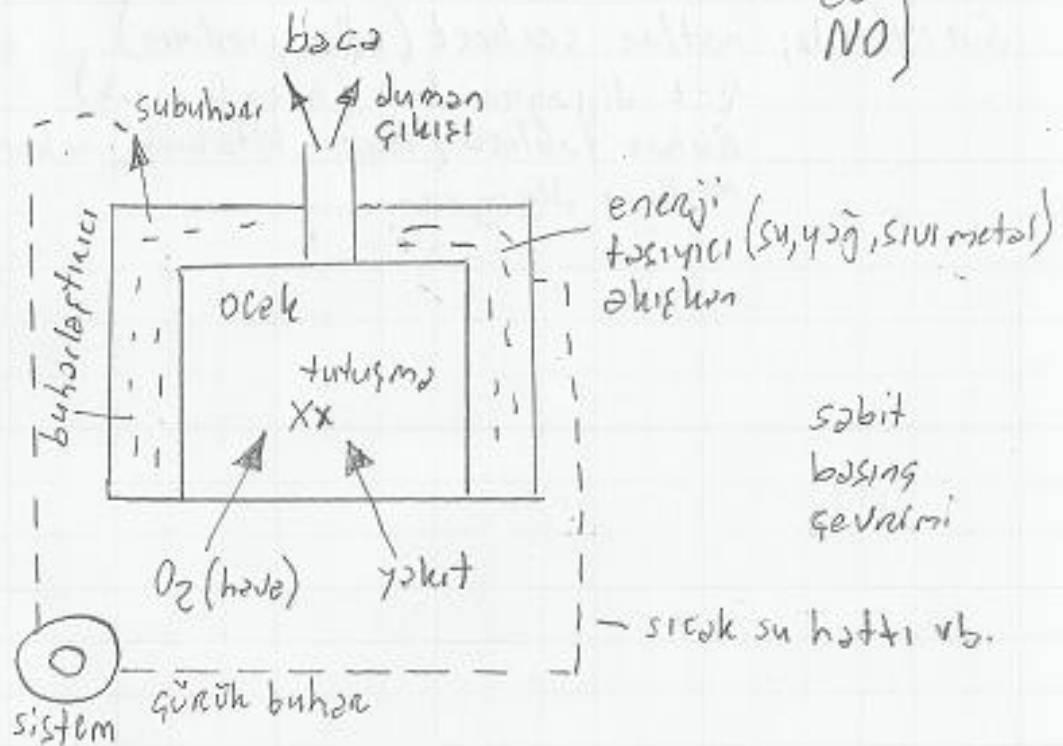 NO
baca
subuharı
duman
çıkışı
enerji
taşıyıcı (su, yağ, sıvı metal)
akışkan
buharlaştırıcı
ocak
tutuşma
XX
sabit
basınç
çevrimi
O2 (hava)
yakıt
sıcak su hattı vb.
çürük buhar
sistem